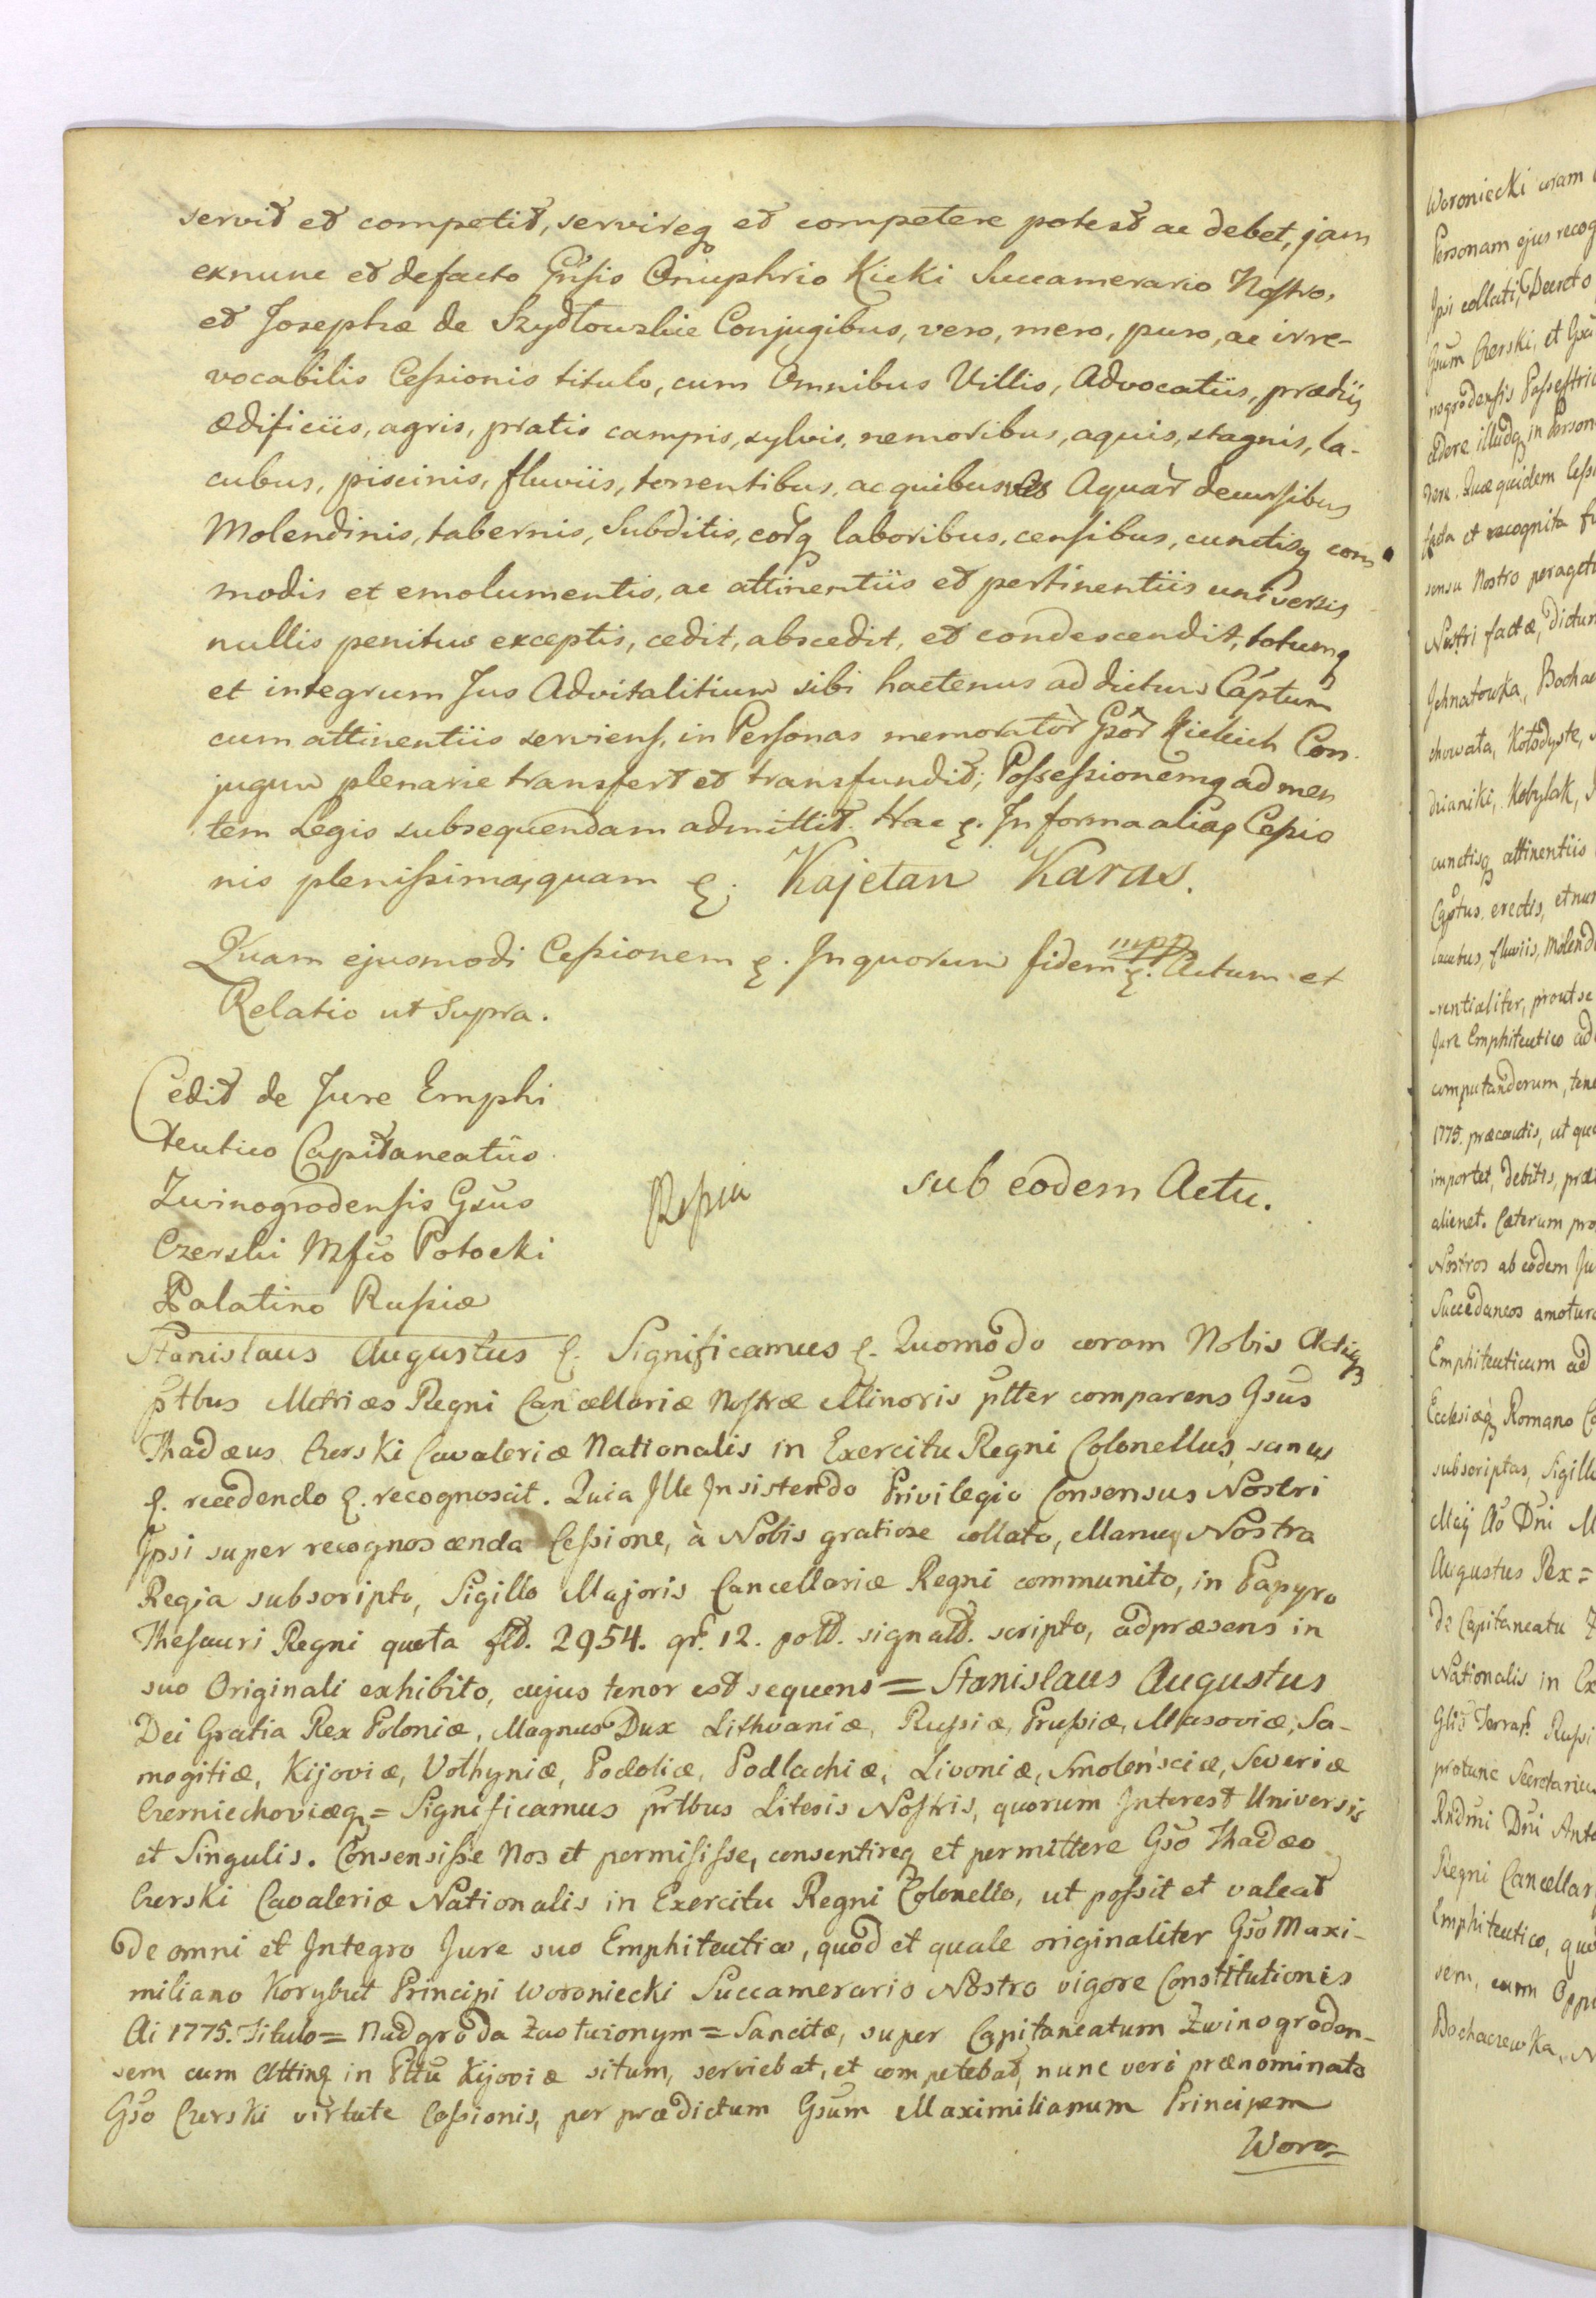 servit et competit, servireq et competere potest ac debet, jam
exnunc et defacto Gnsio Onuphrio Kicki Succamerario Nostro,
et Josephæ de Szydłowskie Conjugibus, vero, mero, puro, ac irre-
vocabilis Cessionis titulo, cum Omnibus Villis, Advocatiis, prædiis
ædificiis, agris, pratis campis, sylvis, nemoribus, aquis, stagnis, la-
cubus, piscinis, fluviis, torrentibus, ac quibusvis Aquar decursibus
Molendinis, tabernis, Subditis, eorq laboribus, censibus, cunctisq com
modis et emolumentis, ac attinentiis et pertinentiis universis
nullis penitus exceptis, cedit, abscedit, et condescendit, totumq
et integrum Jus Advitalitium sibi hactenus ad dictum Captum
cum attinentiis serviens, in Personas memorator Gsor Kickich Con
jugum plenarie transfert et transfundit; Possessionemq ad men
tem Legis subsequendam admittit. Hac &. In forma aliaq Cessio
nis plenissima, quam &. Kajetan Karas.
mpp
Quam ejusmodi Cessionem &. In quorum fidem &. Actum et
Relatio ut Supra.
Cedit de Jure Emphi
teutico Capitaneatûs
Zwinogrodensis Gsus
Czerski Mfco Potocki
Palatino Russiæ
sub eodem Actu.
Stanislaus Augustus &. Significamus &. Quomodo coram Nobis Actisq
ptbus Metrices Regni Cancellariæ Nostræ Minoris pltter comparens Gsus
Thadæus Czerski Cavaleriæ Nationalis in Exercitu Regni Colonellus, sanus
&. recedendo &. recognoscit. Quia Ille Insistendo Privilegio Consensus Nostri
Ipsi super recognoscenda Cessione, à Nobis gratiose collato, Manuq Nostra
Regia subscripto, Sigillo Majoris Cancellariæ Regni communito, in Papyro
Thesauri Regni quota fld. 2954. gr. 12. poltt. signatt. scripto, adpræsens in
suo Originali exhibito, cujus tenor est sequens = Stanislaus Augustus
Dei Gratia Rex Poloniæ, Magnus Dux Lithvaniæ, Russiæ, Prussiæ, Masoviæ, Sa-
mogitiæ, Kijoviæ, Volhyniæ, Podoliæ, Podlachiæ, Livoniæ, Smolensciæ, Severiæ
Czerniechoviæq = Significamus prttbus Literis Nostris, quorum Interest Universis
et Singulis. Consensisse Nos et permisisse, consentireq et permittere Gso Thadæo
Czerski Cavaleriæ Nationalis in Exercitu Regni Colonello, ut possit et valeat
de omni et Integro Jure suo Emphiteutico, quod et quale originaliter Gso Maxi-
miliano Korybut Principi Woroniecki Succamerario Nostro vigore Constitutionis
Ai 1775. Titulo = Nadgroda Zasłuzonym = Sancitæ, super Capitaneatum Zwinogroden-
sem cum Attinq in Pttu Kijoviæ situm, serviebat, et competebat, nunc verò prænominato
Gso Czerski virtute Cessionis, per prædictum Gsum Maximilianum Principem
Woro=
Woroniecki coram
Personam ejus recog
Ipsi collati, Decreto
Gsum Czerski, et
nogrodensis Possessri
cedere illudq in Person
tada et recognita
sensu Nostro peraget
Nostri factæ, Dictu
cunctisq attinentiis
erectis, et nu
fluviis, Molend
rentialiter, prout se
Jure Emphiteutico ad
computandorum, ten
1775. præcautis, ut qu
importet, debitis, præ
alienet. Cæterum pro
Nostros ab eodem Ju
Succedaneos amotur
Emphiteuticum ad
Ecclesiæq Romano C
subscriptas, Sigill
Maij Ao Dni M
Augustus Rex =
de Capitaneatu Z
Nationalis in Ex
Glis Terrar. Russi
protunc Secretariu
Rndmi Dni Ant
Regni Cancellar
Emphiteutico, quo
sem, cum Opp
Bochaczewka, N